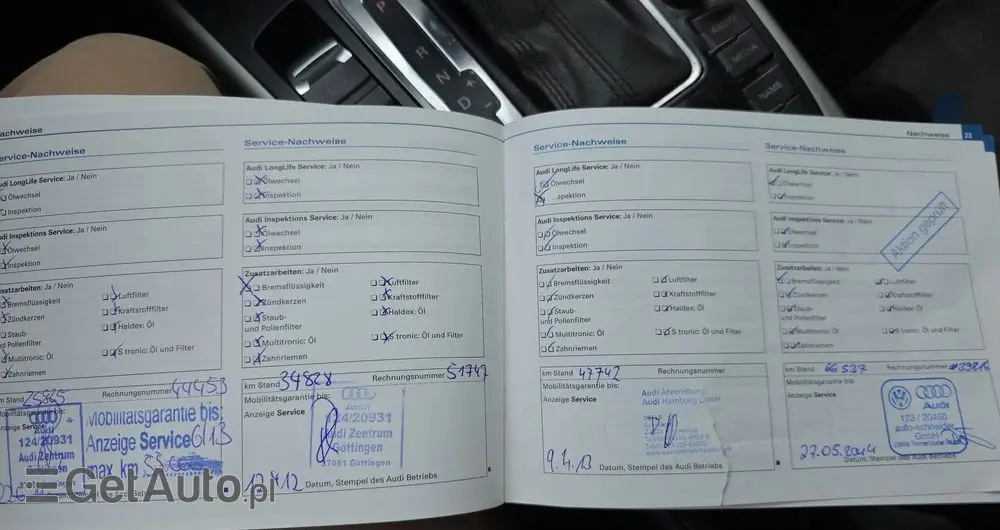 P
R
N
D
+
-
RADIO
MEDIA
NAME
Nachweise
23
achweise
ervice-Nachweise
udi LongLife Service: Ja / Nein
Ölwechsel
Inspektion
udi Inspektions Service: Ja / Nein
Ölwechsel
Inspektion
usatzarbeiten: Ja / Nein
Bremsflüssigkeit
Luftfilter
Zündkerzen
Kraftstofffilter
Staub-
d Pollenfilter
Haldex: Öl
Multitronic: Öl
S tronic: Öl und Filter
Zahnriemen
m Stand
Rechnungsnummer 44453
Mobilitätsgarantie bis:
Anzeige Service 6/13
max. km
Audi
124/20931
Audi Zentrum
Service-Nachweise
Audi LongLife Service: Ja / Nein
Ölwechsel
Inspektion
Audi Inspektions Service: Ja / Nein
Ölwechsel
Inspektion
Zusatzarbeiten: Ja / Nein
Bremsflüssigkeit
Luftfilter
Zündkerzen
Kraftstofffilter
Staub-
und Pollenfilter
Haldex: Öl
Multitronic: Öl
S tronic: Öl und Filter
Zahnriemen
km Stand 34828
Rechnungsnummer 51747
Mobilitätsgarantie bis:
Anzeige Service
Audi
124/20931
Audi Zentrum
Göttingen
37081 Göttingen
12.4.12
Datum, Stempel des Audi Betriebs
Service-Nachweise
Audi LongLife Service: Ja / Nein
Ölwechsel
pektion
Audi Inspektions Service: Ja / Nein
Ölwechsel
Inspektion
Zusatzarbeiten: Ja / Nein
Bremsflüssigkeit
Luftfilter
Zündkerzen
Kraftstofffilter
Staub-
und Pollenfilter
Haldex: Öl
Multitronic: Öl
S tronic: Öl und Filter
Zahnriemen
km Stand 47742
Rechnungsnummer
Mobilitätsgarantie bis:
Anzeige Service
Audi Ahrensburg
Audi Hamburg GmbH
9.4.13
Datum, Stempel des Audi Betriebs
Service-Nachweise
Audi LongLife Service: Ja / Nein
Ölwechsel
Inspektion
Audi Inspektions Service: Ja / Nein
Ölwechsel
Inspektion
Aktion geprüft
Zusatzarbeiten: Ja / Nein
Bremsflüssigkeit
Luftfilter
Zündkerzen
Kraftstofffilter
Staub-
und Pollenfilter
Haldex: Öl
Multitronic: Öl
S tronic: Öl und Filter
Zahnriemen
km Stand 66 537
Rechnungsnummer
Mobilitätsgarantie bis:
Anzeige Service
Audi
123 / 20460
auto-schneider
GmbH
27.05.2014
Datum, Stempel des Audi Betriebs
GetAuto.pl